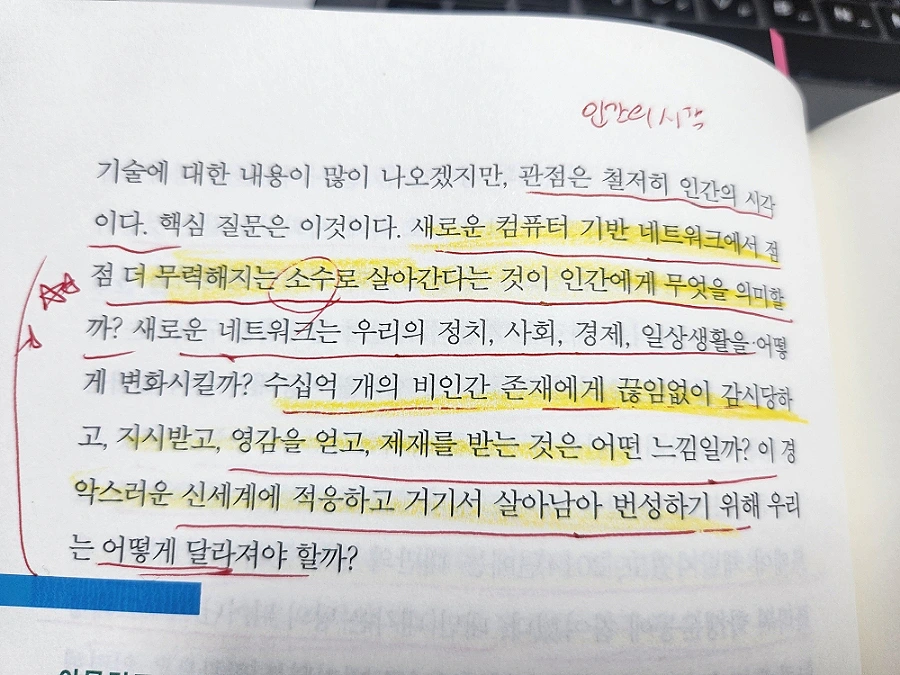 인간의 시각
기술에 대한 내용이 많이 나오겠지만, 관점은 철저히 인간의 시각
이다. 핵심 질문은 이것이다. 새로운 컴퓨터 기반 네트워크에서 점
점 더 무력해지는 소수로 살아간다는 것이 인간에게 무엇을 의미할
까? 새로운 네트워크는 우리의 정치, 사회, 경제, 일상생활을 어떻
게 변화시킬까? 수십억 개의 비인간 존재에게 끊임없이 감시당하
고, 지시받고, 영감을 얻고, 제재를 받는 것은 어떤 느낌일까? 이 경
악스러운 신세계에 적응하고 거기서 살아남아 번성하기 위해 우리
는 어떻게 달라져야 할까?